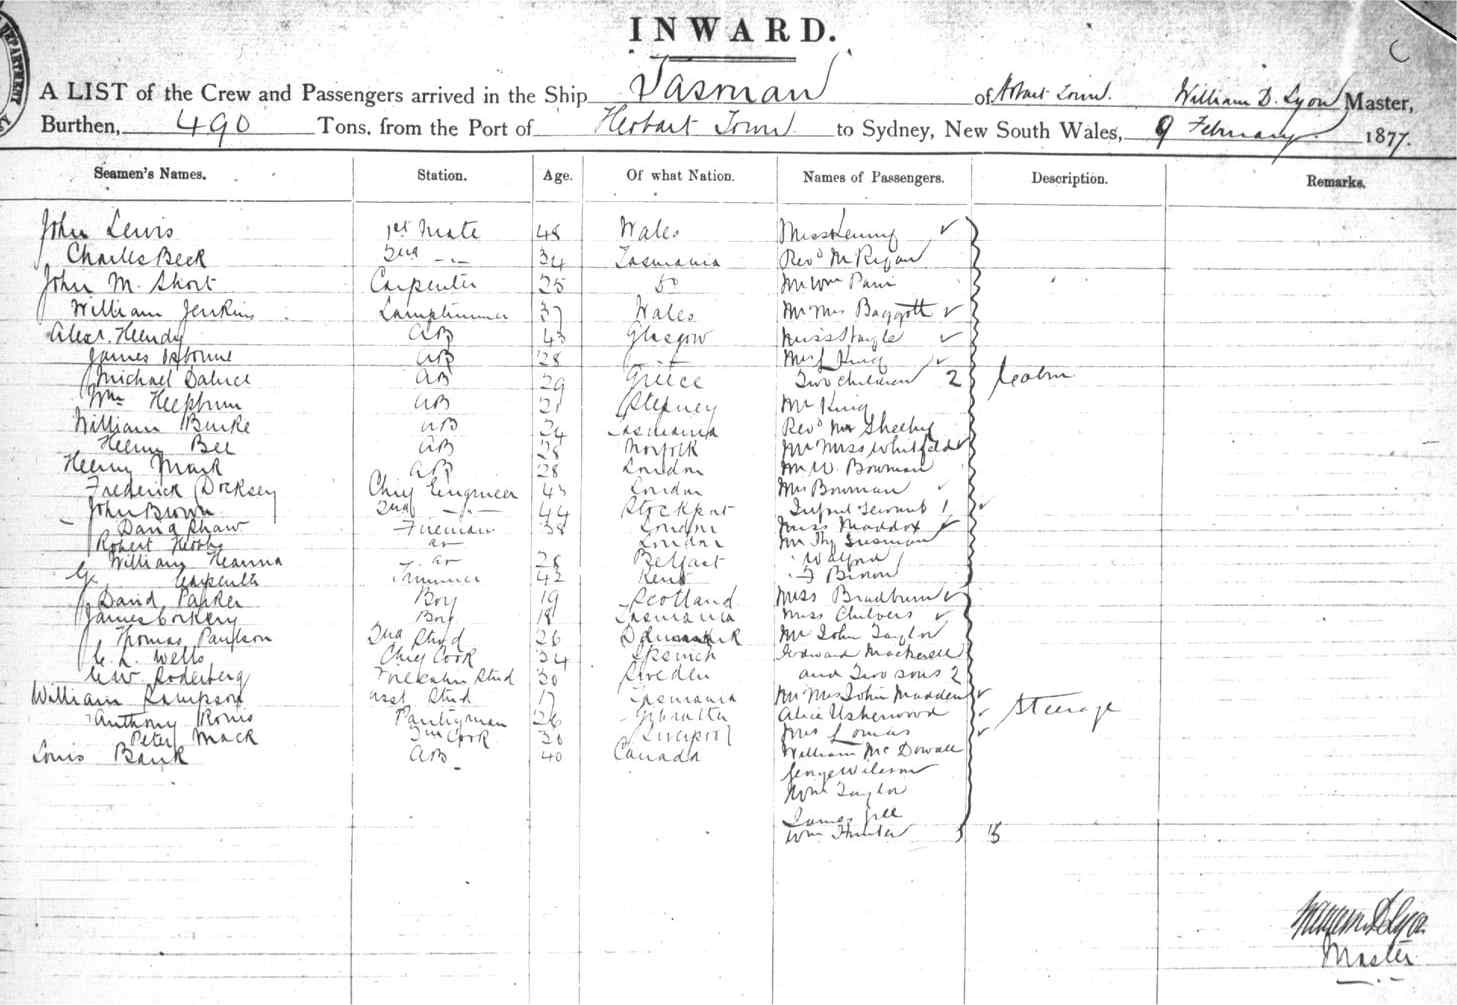 INWARD.
A LIST of the Crew and Passengers arrived in the Ship Tasman of Hobart Town. William D. Lyon Master,
Burthen, 490 Tons, from the Port of Hobart Town to Sydney, New South Wales, 9 February 1877.
Seamen's Names. Station. Age. Of what Nation. Names of Passengers. Description. Remarks.
John Lewis 1st Mate 48 Wales Miss
Charles Beck 2nd -"- 34 Tasmania Revd Mr Ryan
John M. Short Carpenter 25 Do Mr Wm
William Jenkins Lamptrimmer 37 Wales Mr Mrs Baggott
Alexr. Hendy AB 43 Glasgow Miss
James Osborne AB 28 Mrs L King
Michael AB 29 Greece Two children 2 Cabin
Wm Hepburn AB 21 Stepney Mr King
William Burke AB 24 Tasmania Revd Mr Sheehy
Henry Bee AB 28 Norfolk Mr Miss Whitfield
Henry Mark AB 28 London Mr W. Bowman
Frederick Docksey Chief Engineer 43 London Mrs Bowman
John Brown 2nd -"- 44 Stockport Infant Servant 1
David Shaw Fireman 38 London Miss Maddox
Robert Hobbs London Mr Thy
William Hanna 28 Belfast Walford
G. Carpenter Trimmer 42 Kent
David Parker Boy 19 Scotland Miss Bradburn
James Corkery Boy 18 Tasmania Miss Chilvers
Thomas Paulson 2nd Stud 26 Denmark Mr John Taylor
C. L. Wells Chief Cook 34 Ipswich Edward Mackerell
Soderberg Forecabin Stud 30 Sweden and Two sons 2
William Simpson asst Stud 17 Tasmania Mr Mrs John Madden
Anthony Pantryman 26 Gibralta Alice Usherwood Steerage
Peter Mack 2nd Cook 30 Liverpool Mrs Lomas
Louis Bank AB 40 Canada William McDowall
George Wilson
Wm Taylor
James Gee
Wm Hunter
William D Lyon
Master